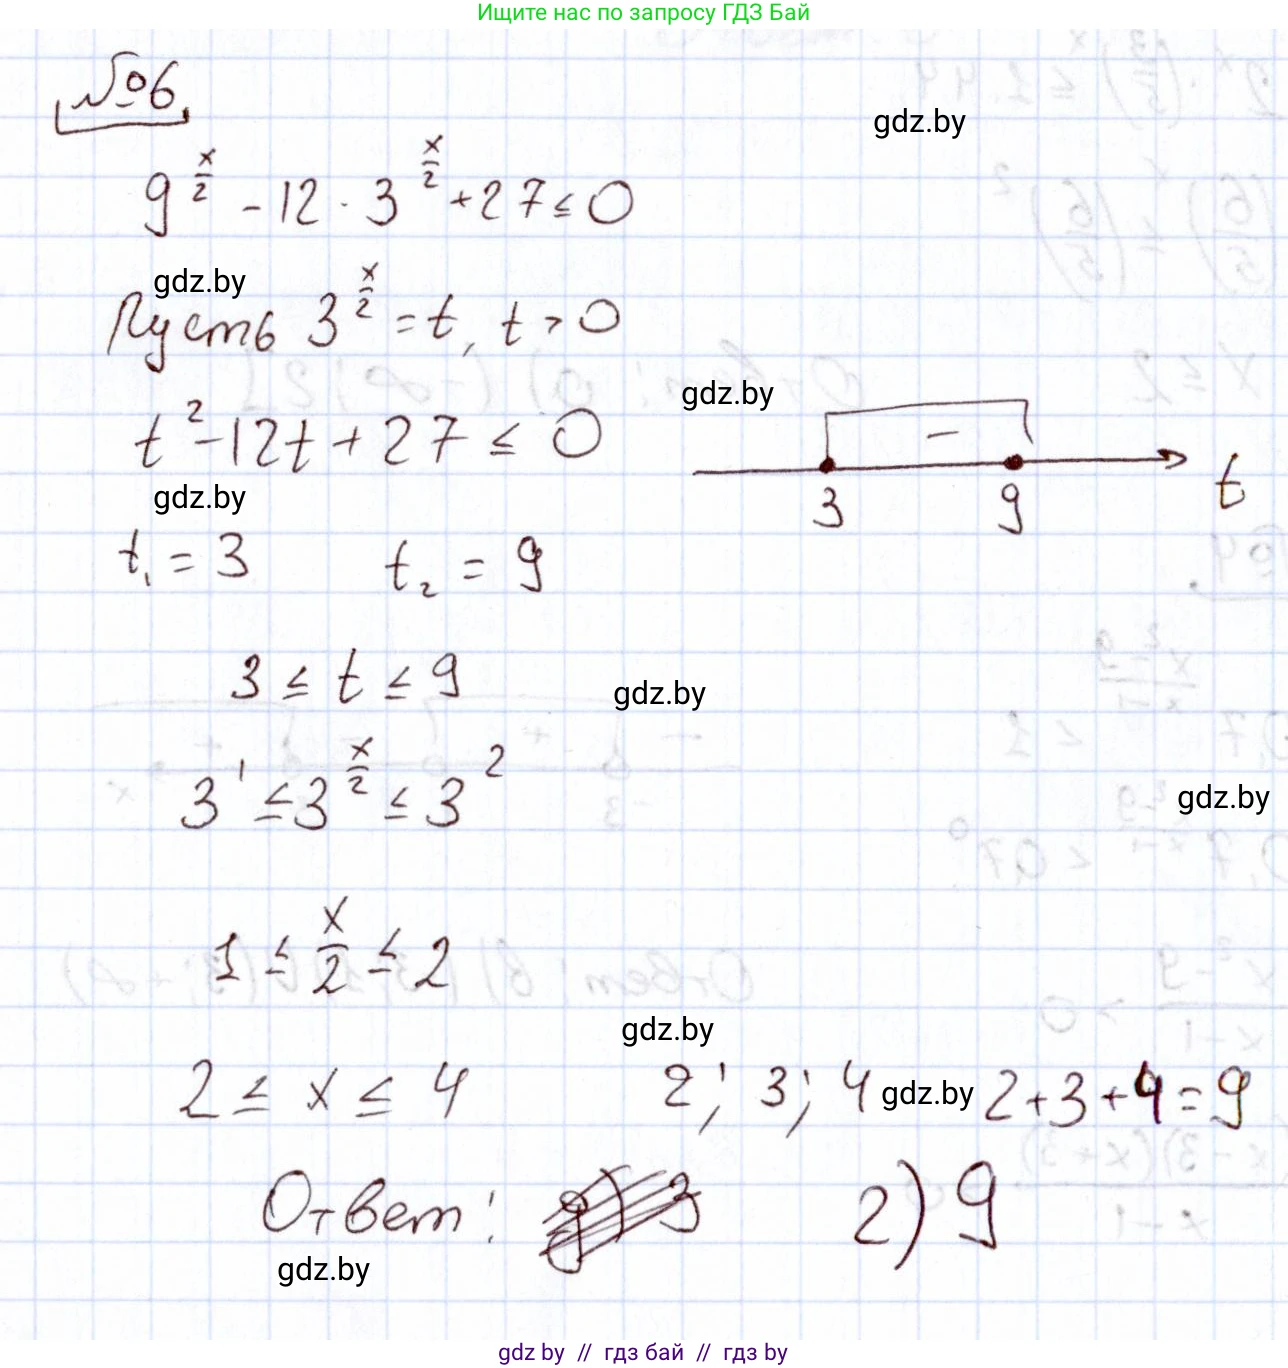 Ищите нас по запросу ГДЗ Бай
№6
gdz.by
9^(x/2) - 12 · 3^(x/2) + 27 ≤ 0
gdz.by
Пусть 3^(x/2) = t, t > 0
gdz.by
t² - 12t + 27 ≤ 0
−
3 9 t
gdz.by
t₁ = 3 t₂ = 9
3 ≤ t ≤ 9
gdz.by
3¹ ≤ 3^(x/2) ≤ 3²
gdz.by
1 ≤ x/2 ≤ 2
gdz.by
2 ≤ x ≤ 4 2; 3; 4 gdz.by 2+3+4=9
Ответ: 2) 9
gdz.by
gdz by // гдз бай // гдз by